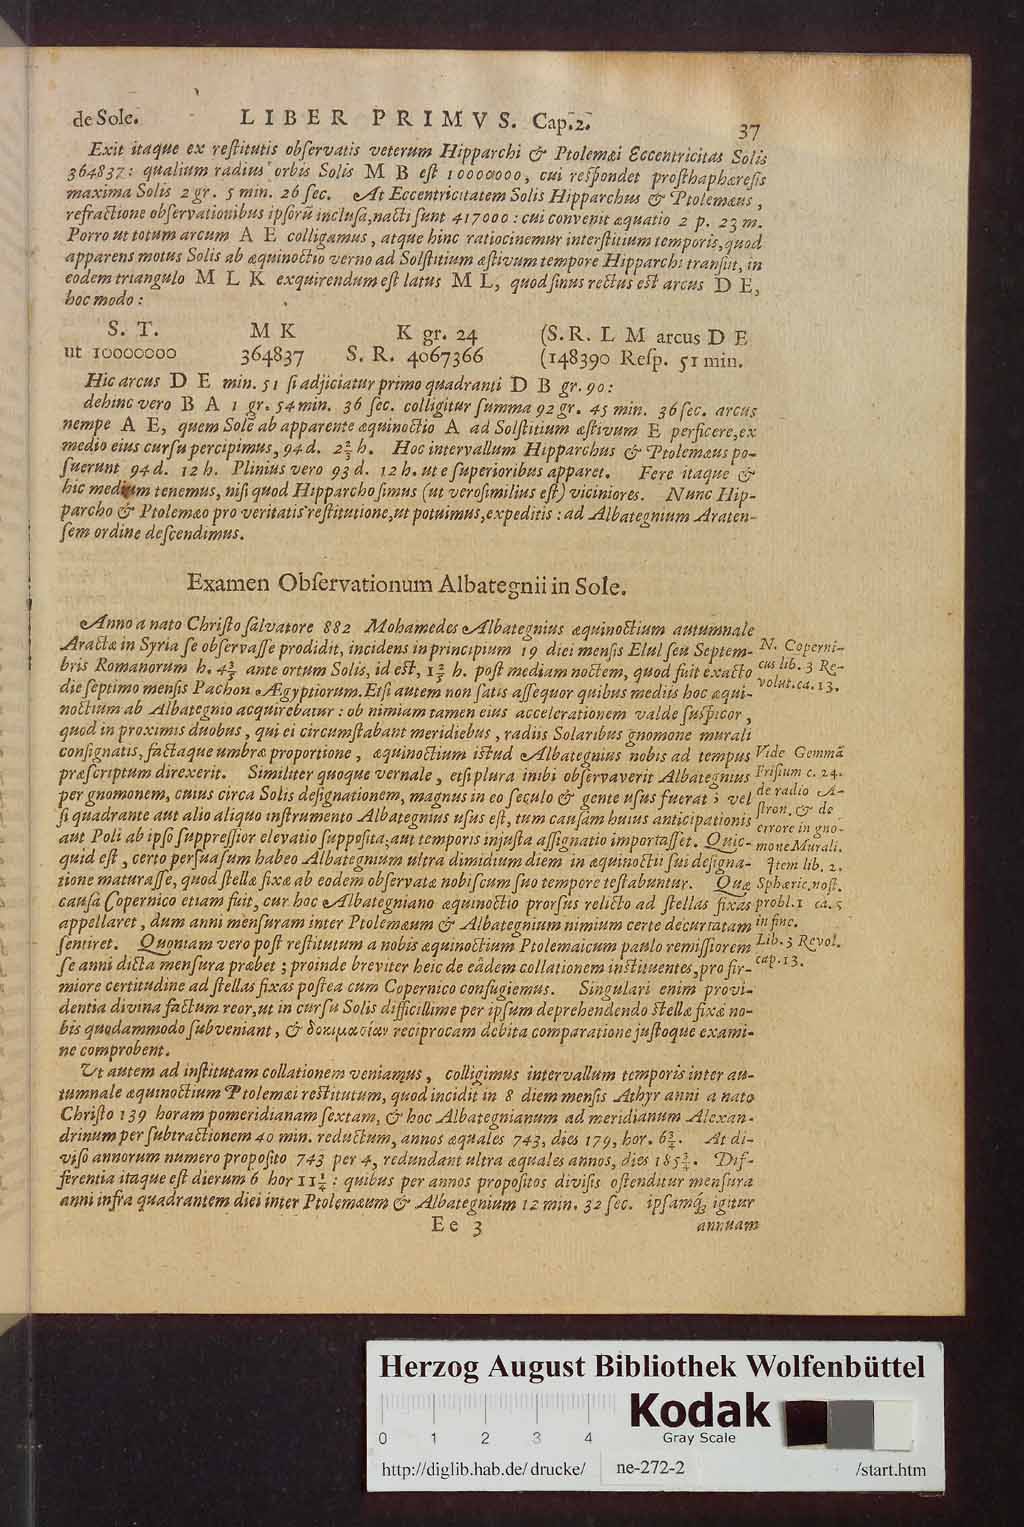 de Sole. LIBER PRIMVS. Cap. 2. 37
Exit itaque ex reſtitutis obſervatis veterum Hipparchi & Ptolemæi Eccentricitas Solis
364837: qualium radius orbis Solis M B eſt 10000000, cui reſpondet proſthaphæreſis
maxima Solis 2 gr. 5 min. 26 ſec. At Eccentricitatem Solis Hipparchus & Ptolemæus,
refractione obſervationibus ipſorũ incluſa, nacti ſunt 417000: cui convenit æquatio 2 p. 23 m.
Porro ut totum arcum A E colligamus, atque hinc ratiocinemur interſtitium temporis, quod
apparens motus Solis ab æquinoctio verno ad Solſtitium æſtivum tempore Hipparchi tranſiit, in
eodem triangulo M L K exquirendum eſt latus M L, quod ſinus rectus eſt arcus D E,
hoc modo:
S. T. M K K gr. 24 (S. R. L M arcus D E
ut 10000000 364837 S. R. 4067366 (148390 Reſp. 51 min.
Hic arcus D E min. 51 ſi adjiciatur primo quadranti D B gr. 90:
dehinc vero B A 1 gr. 54 min. 36 ſec. colligitur ſumma 92 gr. 45 min. 36 ſec. arcus
nempe A E, quem Sole ab apparente æquinoctio A ad Solſtitium æſtivum E perficere, ex
medio eius curſu percipimus, 94 d. 2⅔ h. Hoc intervallum Hipparchus & Ptolemæus po-
ſuerunt 94 d. 12 h. Plinius vero 93 d. 12 h. ut e ſuperioribus apparet. Fere itaque &
hic medium tenemus, niſi quod Hipparcho ſimus (ut veroſimilius eſt) viciniores. Nunc Hip-
parcho & Ptolemæo pro veritatis reſtitutione, ut potuimus, expeditis: ad Albategnium Araten-
ſem ordine deſcendimus.
Examen Obſervationum Albategnii in Sole.
Anno a nato Chriſto ſalvatore 882 Mohamedes Albategnius æquinoctium autumnale
Aractæ in Syria ſe obſervaſſe prodidit, incidens in principium 19 diei menſis Elul ſeu Septem-
bris Romanorum h. 4⅗ ante ortum Solis, id eſt, 1⅖ h. poſt mediam noctem, quod fuit exacto
die ſeptimo menſis Pachon Ægyptiorum. Etſi autem non ſatis aſſequor quibus mediis hoc æqui-
noctium ab Albategnio acquirebatur: ob nimiam tamen eius accelerationem valde ſuſpicor,
quod in proximis duobus, qui ei circumſtabant meridiebus, radiis Solaribus gnomone murali
conſignatis, factaque umbræ proportione, æquinoctium iſtud Albategnius nobis ad tempus
præſcriptum direxerit. Similiter quoque vernale, etſi plura inibi obſervaverit Albategnius
per gnomonem, cuius circa Solis deſignationem, magnus in eo ſeculo & gente uſus fuerat; vel
ſi quadrante aut alio aliquo inſtrumento Albategnius uſus eſt, tum cauſam huius anticipationis
aut Poli ab ipſo ſuppreſſior elevatio ſuppoſita, aut temporis injuſta aſſignatio importaſſet. Quic-
quid eſt, certo perſuaſum habeo Albategnium ultra dimidium diem in æquinoctii ſui deſigna-
tione maturaſſe, quod ſtellæ fixæ ab eodem obſervatæ nobiſcum ſuo tempore teſtabuntur. Quæ
cauſa Copernico etiam fuit, cur hoc Albategniano æquinoctio prorſus relicto ad ſtellas fixas
appellaret, dum anni menſuram inter Ptolemæum & Albategnium nimium certe decurtatam
ſentiret. Quoniam vero poſt reſtitutum a nobis æquinoctium Ptolemaicum paulo remiſſiorem
ſe anni dicta menſura præbet; proinde breviter heic de eâdem collationem inſtituentes, pro fir-
miore certitudine ad ſtellas fixas poſtea cum Copernico confugiemus. Singulari enim provi-
dentia divina factum reor, ut in curſu Solis difficillime per ipſum deprehendendo ſtellæ fixæ no-
bis quodammodo ſubveniant, & δοκιμασίαν reciprocam debita comparatione juſtoque exami-
ne comprobent.
Ut autem ad inſtitutam collationem veniamus, colligimus intervallum temporis inter au-
tumnale æquinoctium Ptolemæi reſtitutum, quod incidit in 8 diem menſis Athyr anni a nato
Chriſto 139 horam pomeridianam ſextam, & hoc Albategnianum ad meridianum Alexan-
drinum per ſubtractionem 40 min. reductum, annos æquales 743, dies 179, hor. 6¾. At di-
viſo annorum numero propoſito 743 per 4, redundant ultra æquales annos, dies 185¾. Dif-
ferentia itaque eſt dierum 6 hor 11¼: quibus per annos propoſitos diviſis oſtenditur menſura
anni infra quadrantem diei inter Ptolemæum & Albategnium 12 min. 32 ſec. ipſamq́; igitur
Ee 3 annuam
N. Coperni-
cus lib. 3 Re-
volut. ca. 13.
Vide Gemmã
Friſium c. 24.
de radio A-
ſtron. & de
errore in gno-
mone Murali.
Item lib. 2.
Sphæric. noſt.
probl. 1 ca. 5
in finc.
Lib. 3 Revol.
cap. 13.
Herzog August Bibliothek Wolfenbüttel
Kodak
Gray Scale
0 1 2 3 4
http://diglib.hab.de/drucke/ ne-272-2 /start.htm